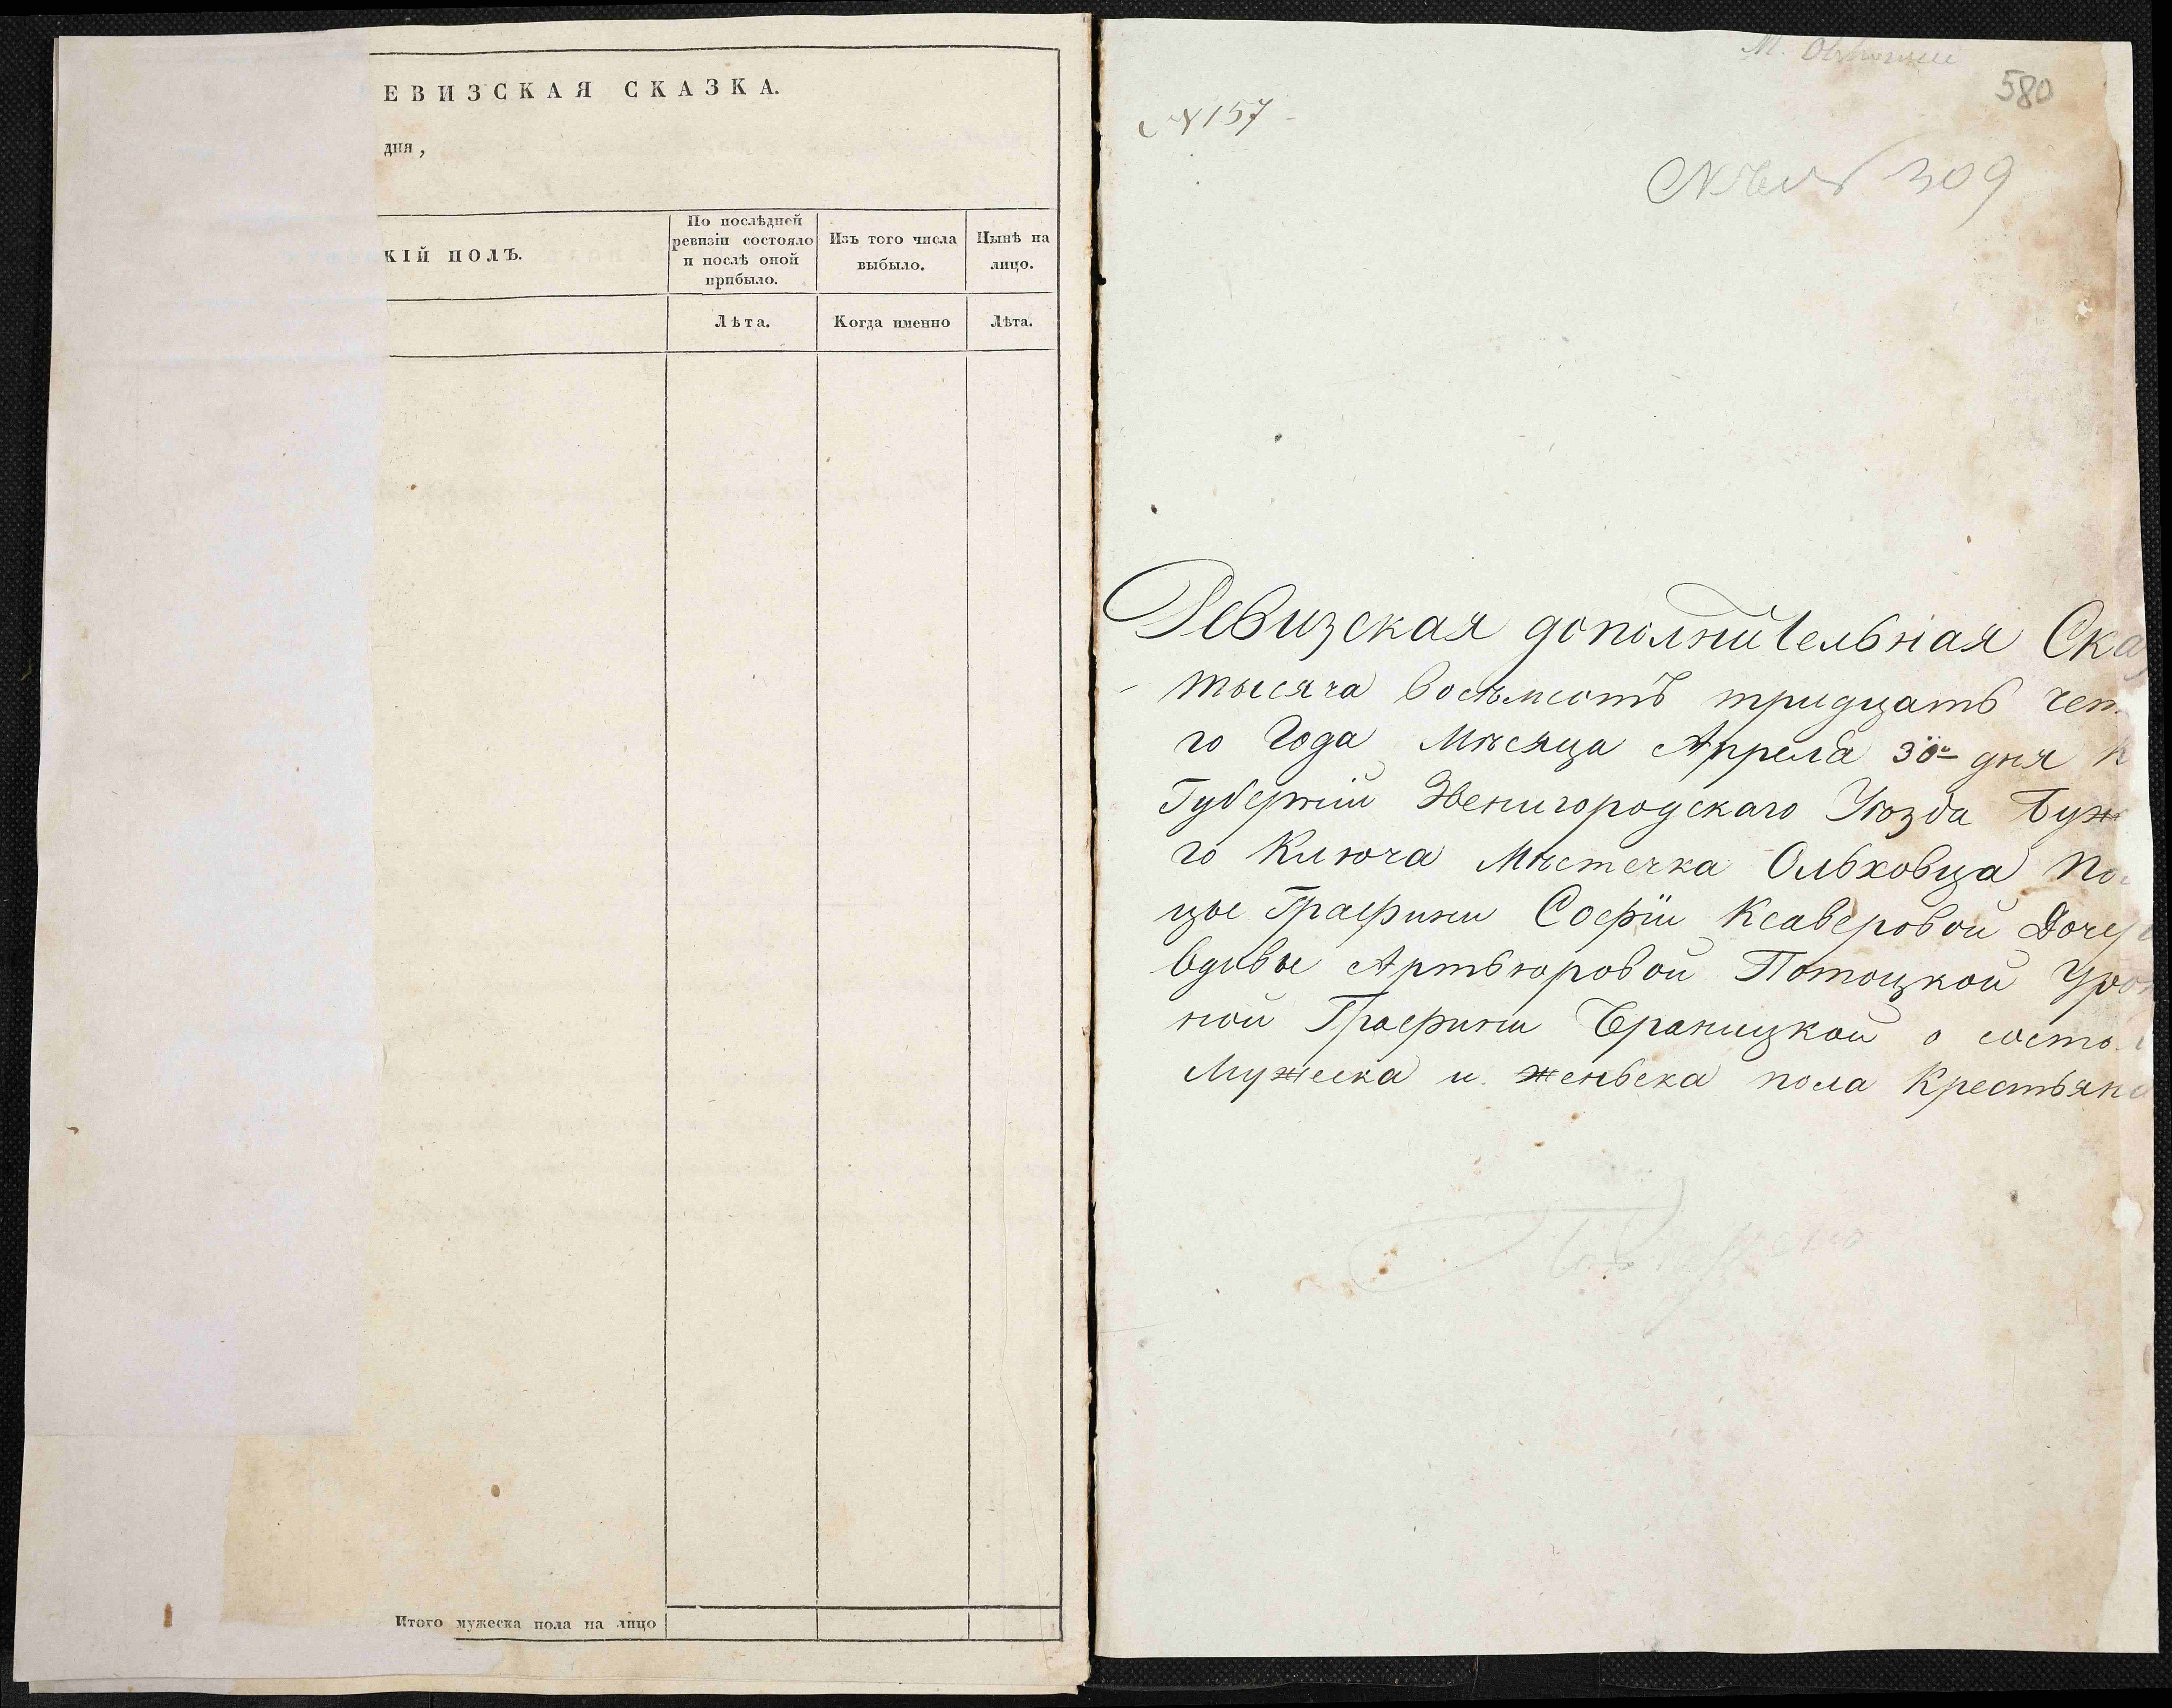 ЕВИЗСКАЯ СКАЗКА.
дня,
КІЙ ПОЛЪ.
По послѣдней
ревизіи состояло
и послѣ оной
прибыло.
Изъ того числа
выбыло.
Нынѣ на
лицо.
Лѣта.
Когда именно
Лѣта.
Итого мужеска пола на лицо
580
№157
309
Ревизская дополнительная Сказ
тысяча восемьсотъ тридцать чет
го Года Мѣсяца Апреля 30го дня К
Губерніи Звенигородскаго Уѣзда Буж
го Ключа Мѣстечка Ольховца По
цы Графини Софіи Ксаверовой Дочер
вдовы Артьюровой Потоцкой Урож
ной Графини Браницкой о состо
Мужеска и женьска пола Крестьяна